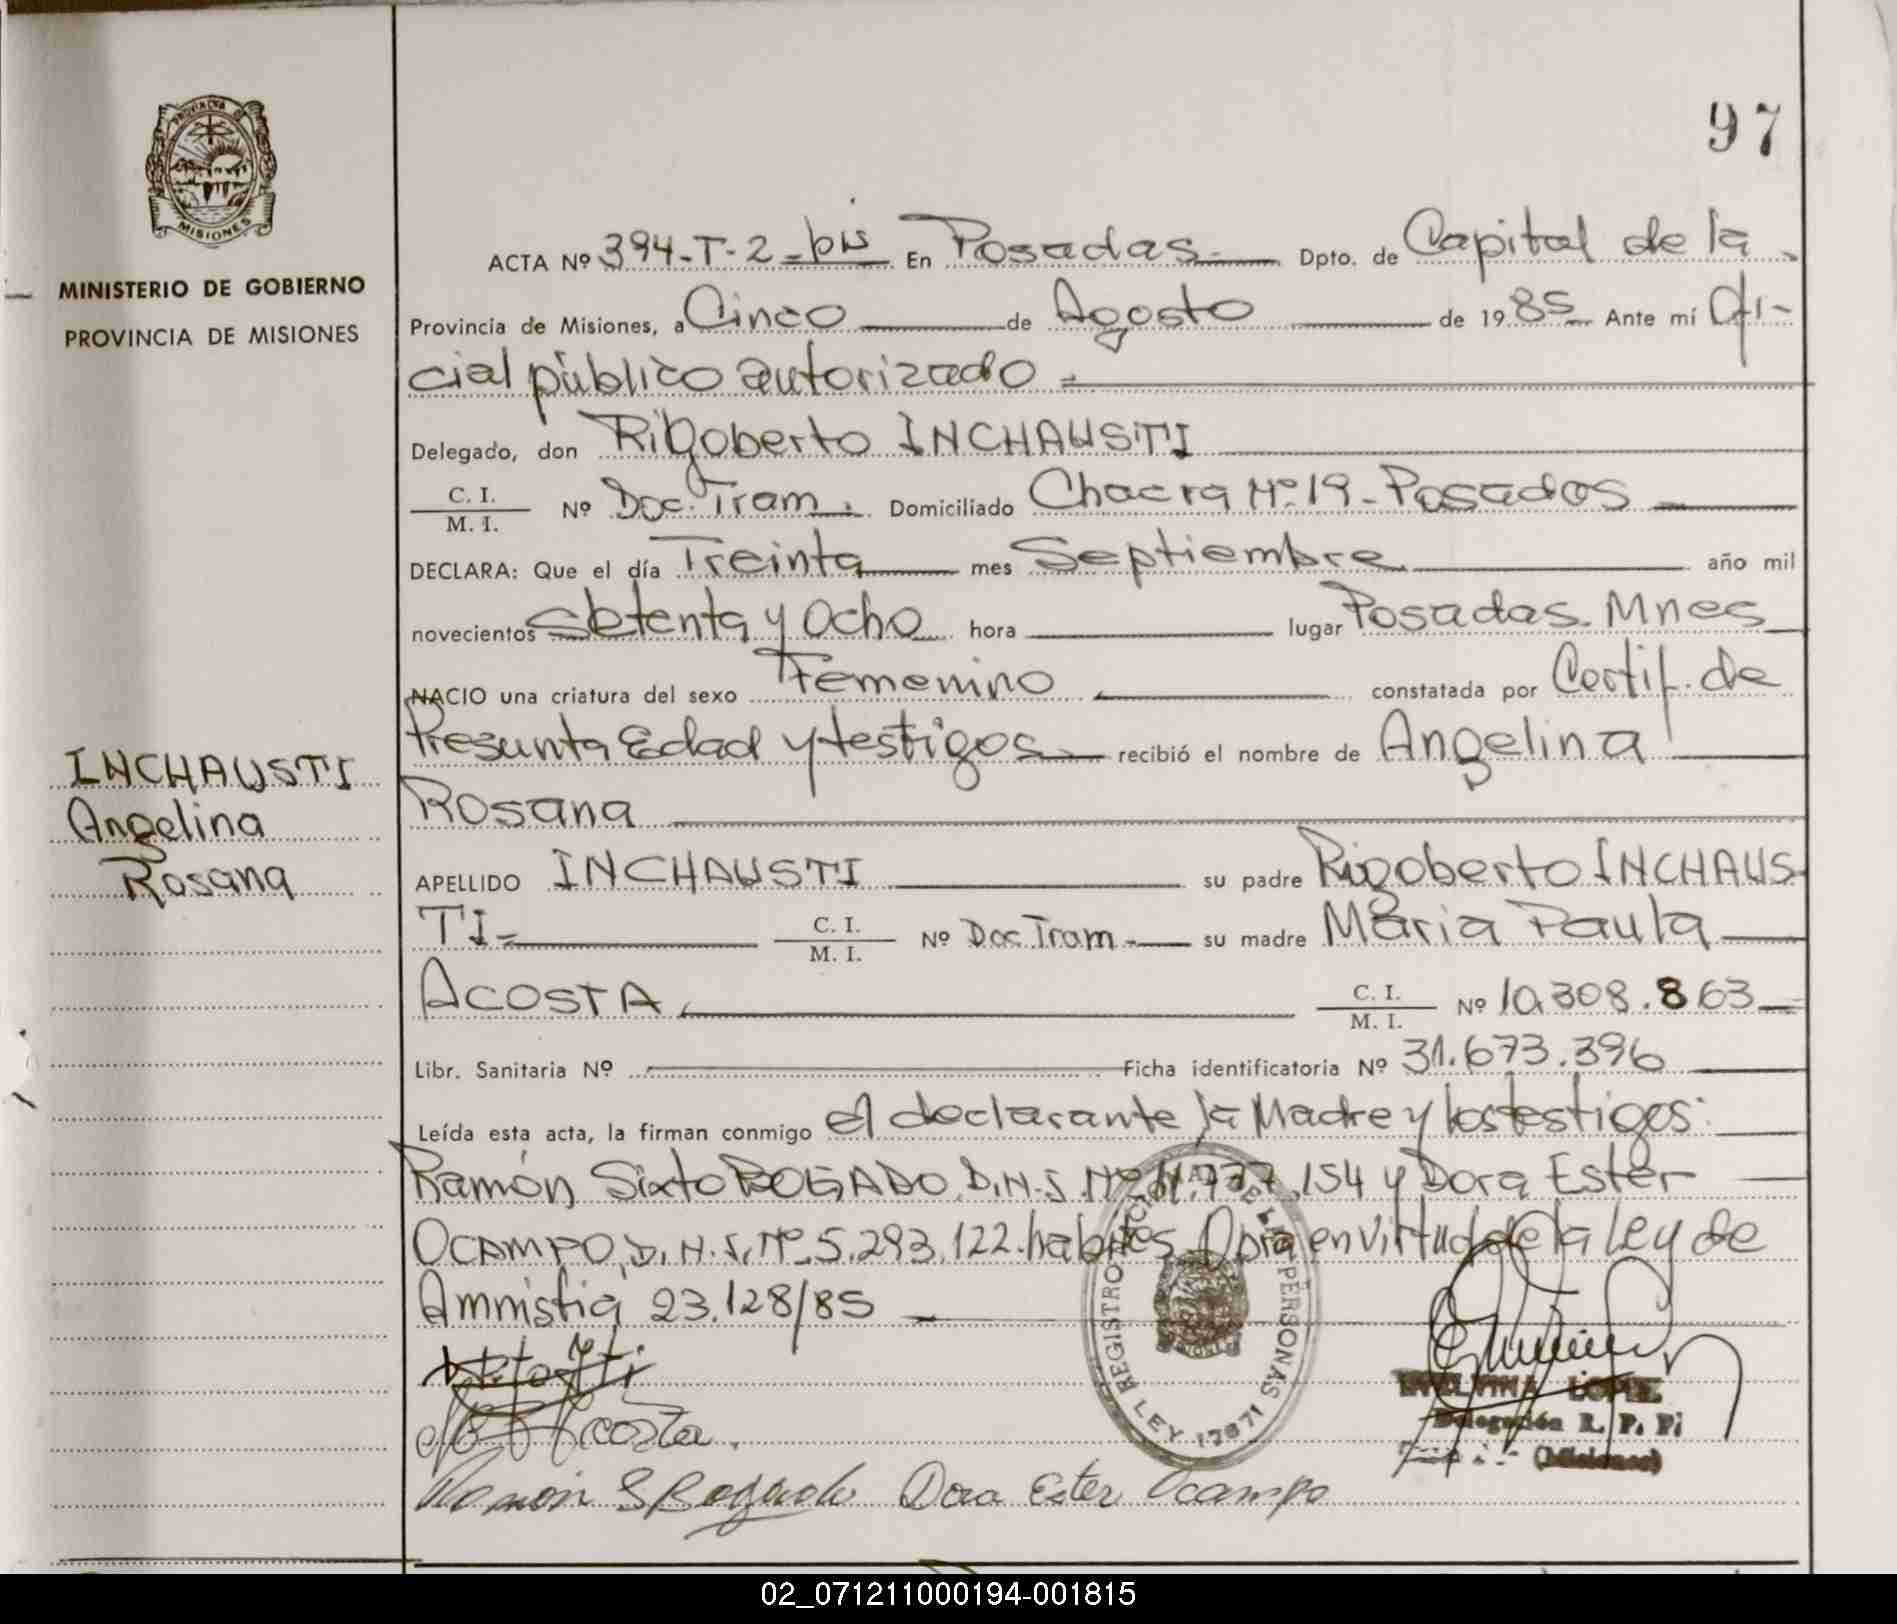 97
PROVINCIA DE
MISIONES
MINISTERIO DE GOBIERNO
PROVINCIA DE MISIONES
INCHAUSTI
Angelina
Rosana
ACTA Nº 394-T-2-bis En Posadas Dpto. de Capital de la
Provincia de Misiones, a Cinco de Agosto de 1985 Ante mí Ofi-
cial público autorizado
Delegado, don Rigoberto INCHAUSTI
C. I.
M. I. Nº Doc. Tram. Domiciliado Chacra Nº 19-Posadas
DECLARA: Que el día Treinta mes Septiembre año mil
novecientos Setenta y Ocho hora lugar Posadas. Mnes
NACIO una criatura del sexo Femenino constatada por Certif. de
Presunta Edad y testigos recibió el nombre de Angelina
Rosana
APELLIDO INCHAUSTI su padre Rigoberto INCHAUS-
TI- C. I.
M. I. Nº Doc Tram su madre María Paula
ACOSTA C. I.
M. I. Nº 10.308.863
Libr. Sanitaria Nº Ficha identificatoria Nº 31.673.396
Leída esta acta, la firman conmigo el declarante la Madre y los testigos:
Ramón Sixto BOGADO D.N.I. Nº 11.737.154 y Dora Ester
OCAMPO, D.N.I. Nº 5.293.122. habiles. Obra en virtud de la Ley de
Amnistia 23.128/85
REGISTRO DE LAS PERSONAS
LEY 17671
Acosta.
LOPEZ
Delegación R. P. Pi
(Misiones)
Ramón S Bogado Dora Ester Ocampo
02_071211000194-001815